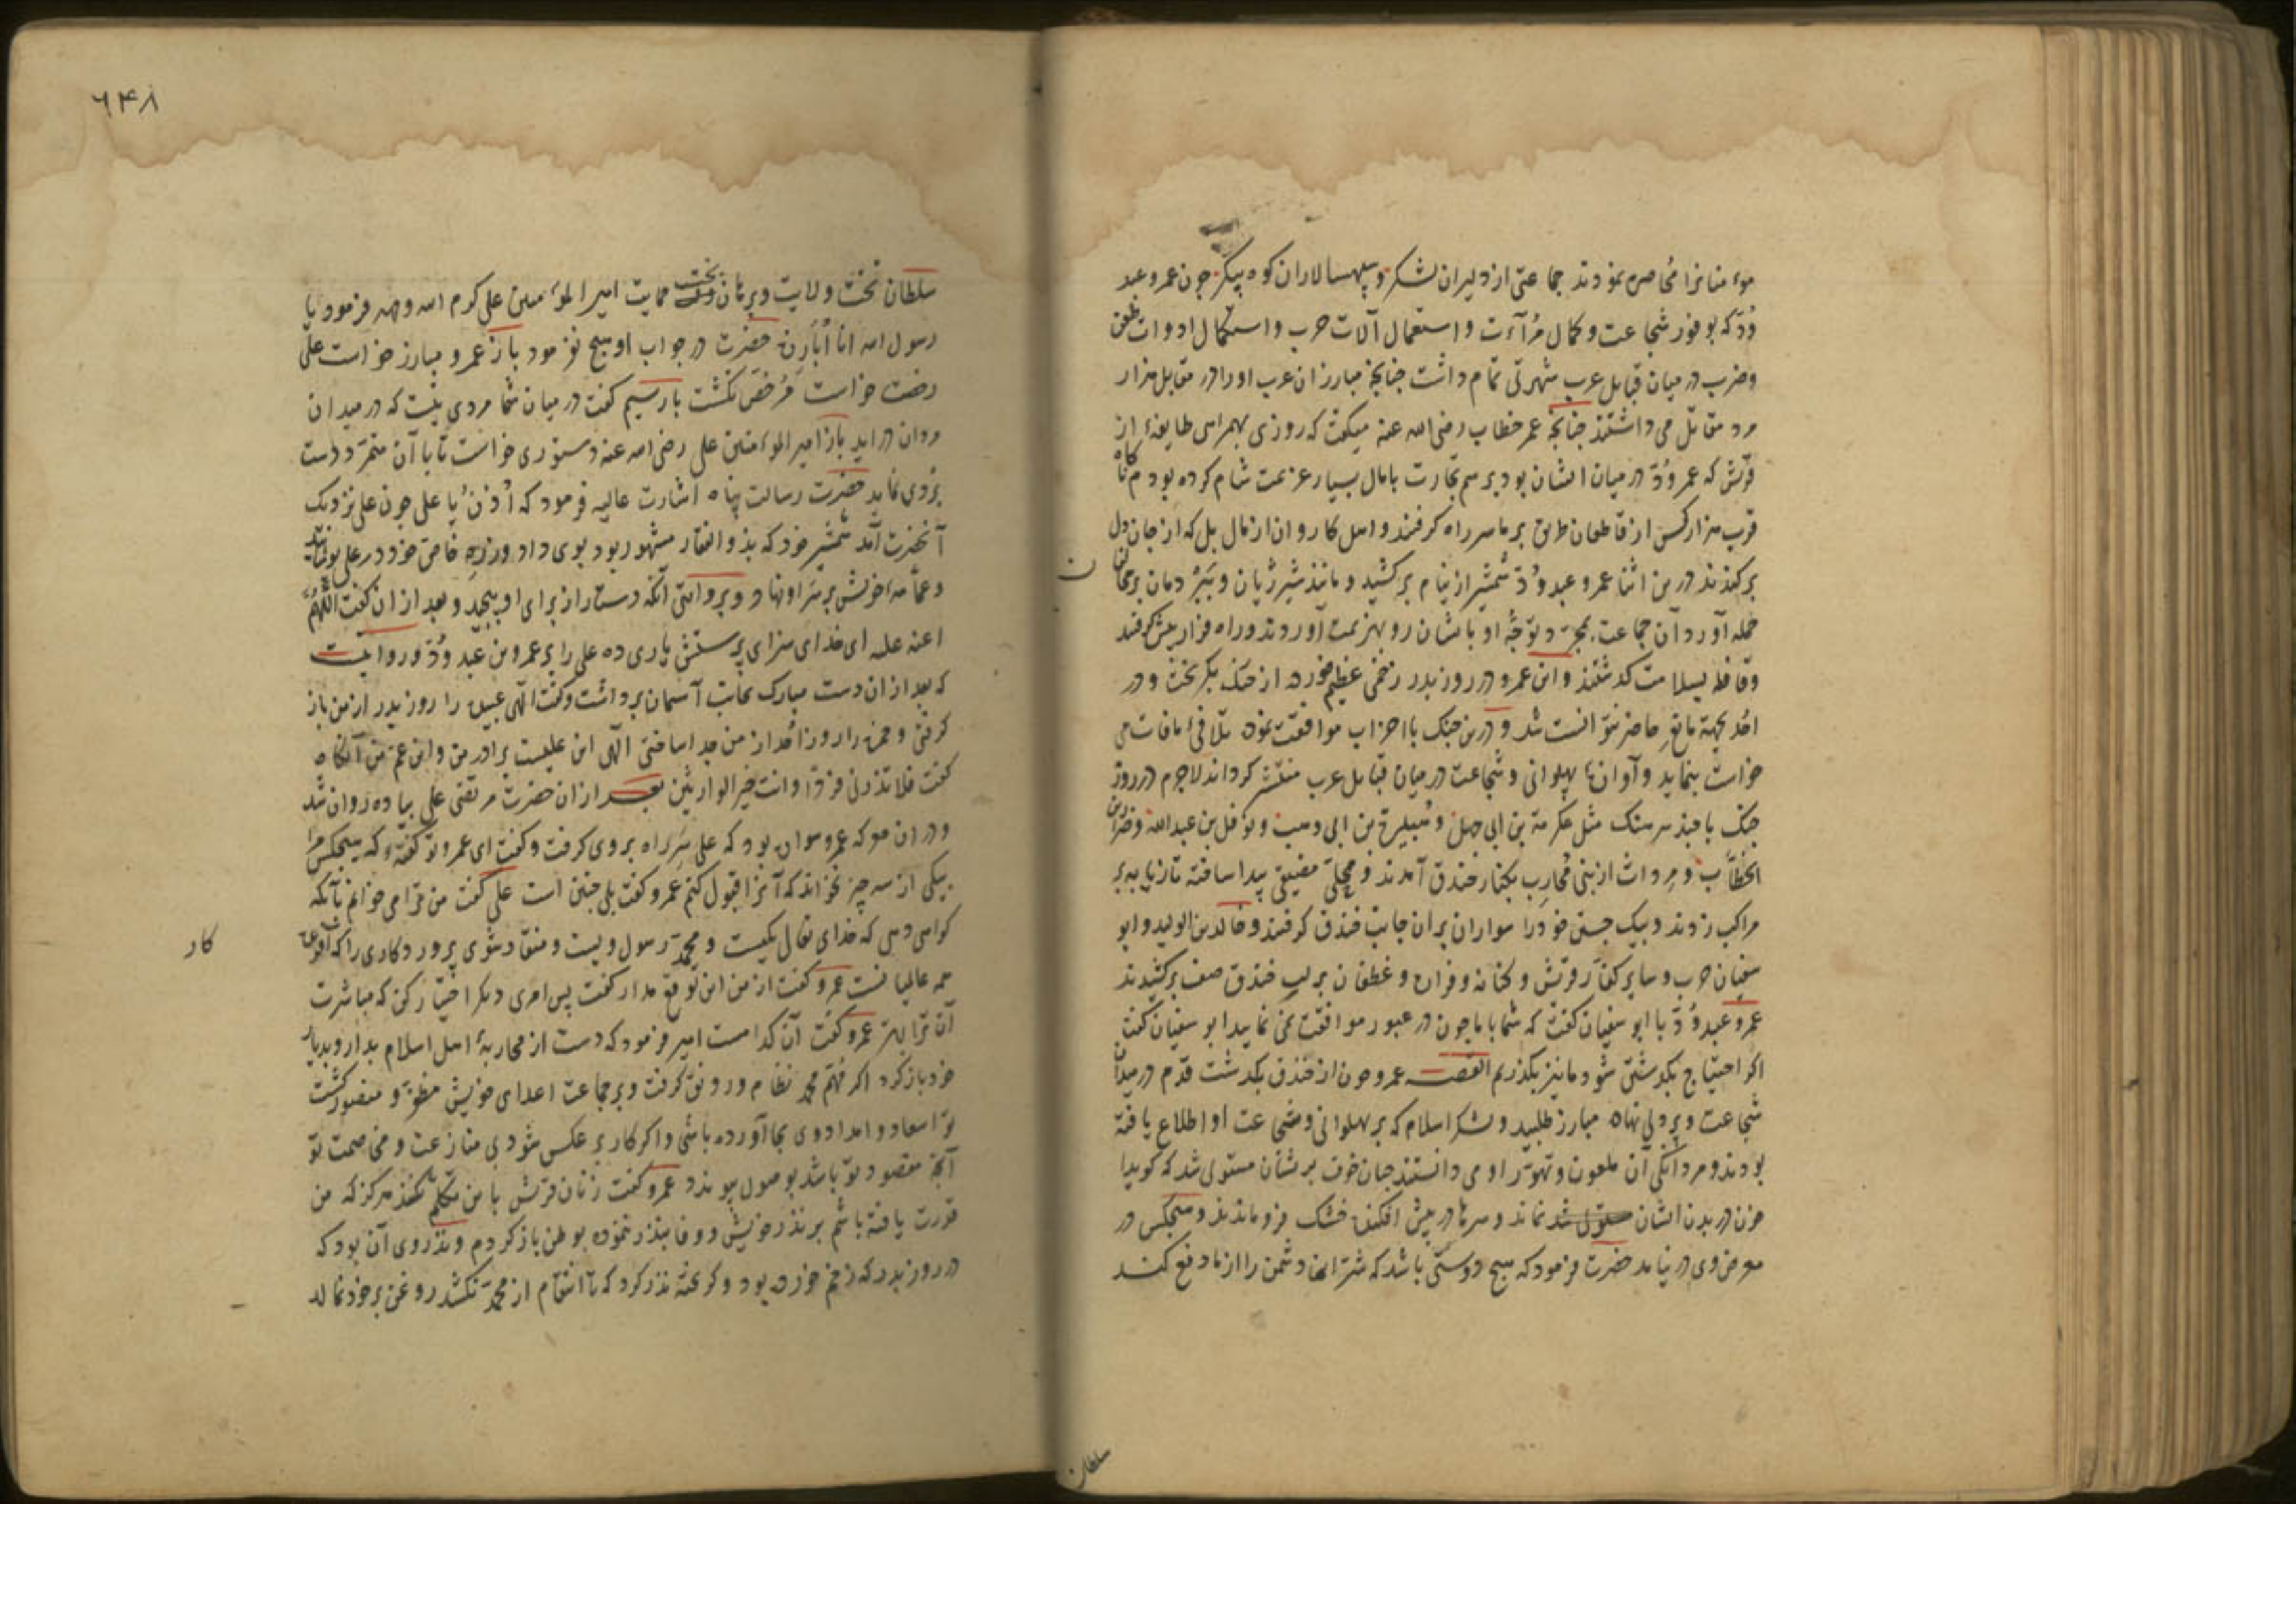 موٴمنانرا محاصره نمودند جماعتی از دلیران لشکر و سپهسالاران کوه پیکر چون عمرو عبد
وُدّ که بوفور شجاعت و کمال مُرآءت و استعمال آلات حرب و استکمال ادوات طعن
و ضرب در میان قبایل عرب شهرتی تمام داشت چنانچه مبارزان عرب او را در مقابل هزار
مرد مقابل می داشتند چنانچه عمر خطاب رضی الله عنه میکفت که روزی بهمراهی طایفهٔ از
قریش که عمر وُدّ در میان ایشان بود برسم تجارت با مال بسیار عزیمت شام کرده بودم ناکاه
قرب هزار کس از قاطعان طریق بر ما سر راه کرفتند و اهل کاروان از مال بل که از جان دل
برکندند درین اثنا عمرو عبد وُدّ شمشیر از نیام برکشید و مانند شیر ژیان و ببر دمان بر مخالفان
حمله آورد آن جماعت بمجرّد توجّه او با ایشان رو بهزیمت آوردند و راه فرار پیش کرفتند
و قافله بسلامت کدشتند و این عمرو در روز بدر زخمی عظیم خورده از جنک بکریخت و در
احُد بجهة مانع حاضر نتوانست شد و درین جنک با احزاب موافقت نموده تلافی مافات می
خواست بنماید و آوازهٔ پهلوانی و شجاعت در میان قبایل عرب منتشر کرداند لاجرم در روز
جنک با چند سرهنک مثل عکرمة بن ابی جهل و هُبیرة بن ابی وهب و نوفل بن عبدالله و ضرار بن
الخطّاب و مرداش از بنی مُحارب بکنار خندق آمدند و محلّی مضیق پیدا ساخته تازیانه بر
مراکب زدند و بیک جستن خود را سواران بر آن جانب خندق کرفتند و خالد بن الولید و ابو
سفیان حرب و سایر کفّار قریش و کنانه و فزاره و غطفان بر لب خندق صف برکشیدند
عمرو عبد وُدّ با ابو سفیان کفت که شما با ما چون در عبور موافقت نمی نمایید ابو سفیان کفت
اکر احتیاج بکدشتن شود ما نیز بکذریم القصه عمرو چون از خندق بکدشت قدم در میدان
شجاعت و پردلی نهاه مبارز طلبید و لشکر اسلام که بر پهلوانی و شجاعت او اطلاع یافته
بودند و مردانکی آن ملعون و تهوّر او می دانستند چنان خوف بریشان مستولی شد که کویدا
خون در بدن ایشان نماند و سرها در پیش افکنده خشک فرو ماندند و هیچکس در
معرض وی در نیامد حضرت فرمود که هیچ دوستی باشد که شرّ این دشمن را از ما دفع کند
سلطان
٦٤٨
سلطان تخت ولایت و برهان بخت حمایت امیر الموٴمنین علی کرم الله وجهه فرمود یا
رسول الله انا اُبارزه حضرت در جواب او هیچ نفرمود باز عمرو مبارز خواست علی
رخصت خواست مُرخّص نکشت بار سیم کفت در میان شما مردی نیست که در میدان
مردان در اید باز امیر الموٴمنین علی رضی الله عنه دستوری خواست تا با آن متمرّد دست
بردی نماید حضرت رسالت پناه اشارت عالیه فرمود که اُدْنُ یا علی چون علی نزدیک
آنحضرت آمد شمشیر خود که بذو الفقار مشهور بود بوی داد و زره خاص خود در علی پوشانید
و عمامهٔ خویش بر سر او نهاد و بروایتی آنکه دستار از برای او پیچید و بعد از ان کفت اللهُمّ
اعنه علیه ای خدای سزای پرستش یاری ده علی را بر عمرو بن عبد وُدّ و روایتست
که بعد از ان دست مبارک بجانب آسمان برداشت و کفت الٓهی عبیده را روز بدر از من باز
کرفتی و حمزه را روز احُد از من جدا ساختی الٓهی این علیست برادر من و ابن عم من آنکاه
کفت فلا تذرنی فردًا و انت خیر الوارثین بعد از ان حضرت مرتضی علی پیاده روان شد
و در ان معرکه عمرو سواره بود که علی سر راه بر وی کرفت و کفت ای عمرو تو کفتهٔ که هیچکس مرا
بیکی از سه چیز نخواند که آنرا قبول کنم عمرو کفت بلی چنین است علی کفت من ترا می خوانم بآنکه
کواهی دهی که خدای تعالی یکیست و محمّد رسول ویست و منقاد شوی پروردکاری را که آفریدکار
همه عالمیانست عمرو کفت از من این توقع مدار کفت پس امری دیکر اختیار کن که مباشرت
آن ترا بهتر عمرو کفت آن کدامست امیر فرمود که دست از محاربهٔ اهل اسلام بدار و بدیار
خود باز کرد اکر مُهمّ محمّد نظام و رونق کرفت و بر جماعت اعدای خویش مظفر و منصور کشت
تو اسعاد و امداد وی بجا آورده باشی و اکر کار بر عکس شود بی منازعت و مخاصمت تو
آنچه مقصود تو باشد بوصول پیوندد عمرو کفت زنان قریش با من تکلم نکنند هرکز که من
قدرت یافته باشم بر نذر خویش و وفا بنذر ننموده بوطن باز کردم و نذر وی آن بود که
در روز بدر که زخم خورده بود و کریخته نذر کرد که تا انتقام از محمّد نکشد روغن بر خود نمالد
کار